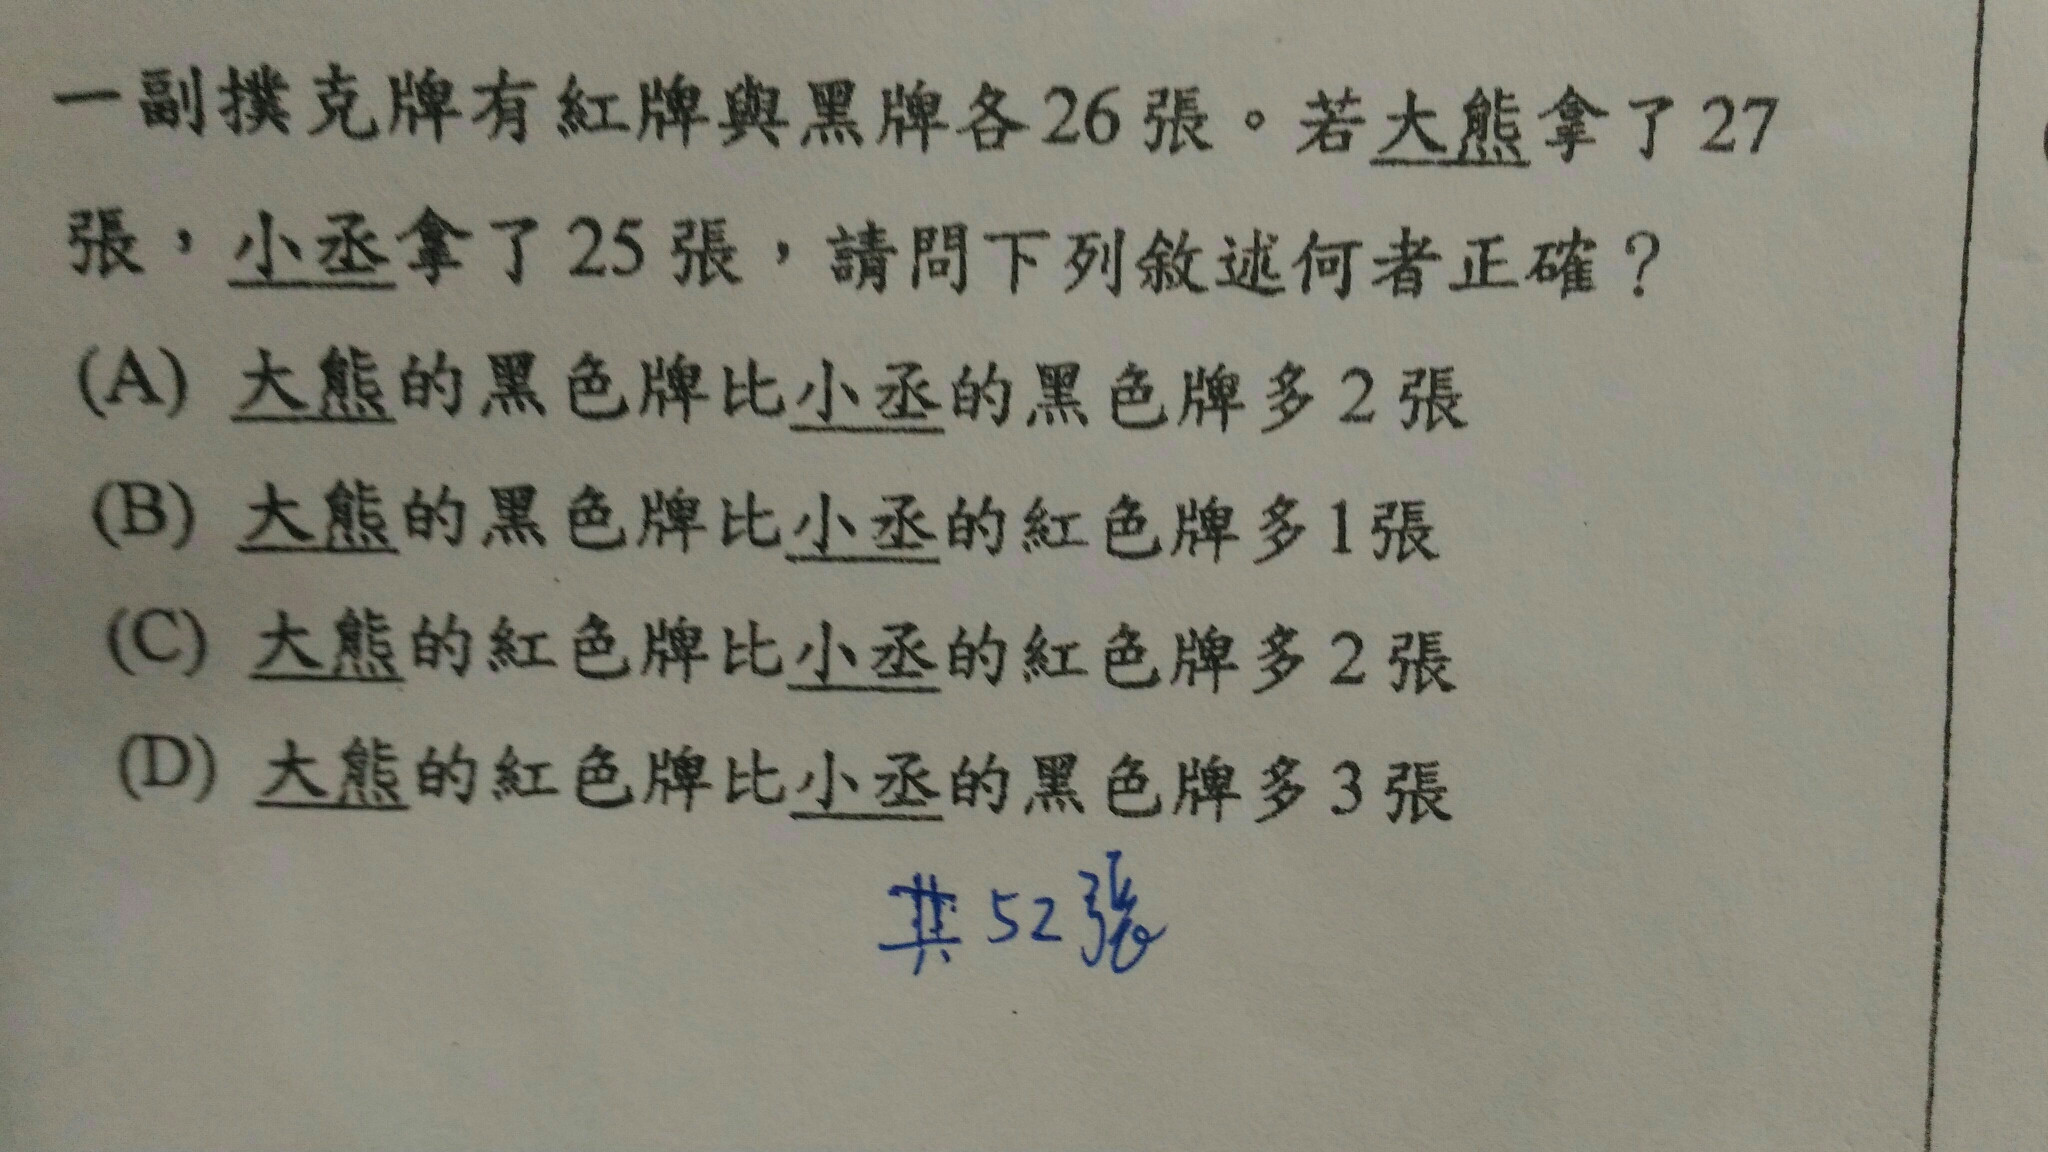 一副撲克牌有紅牌與黑牌各26張。若大熊拿了27
張，小丞拿了25張，請問下列敘述何者正確？
(A) 大熊的黑色牌比小丞的黑色牌多2張
(B) 大熊的黑色牌比小丞的紅色牌多1張
(C) 大熊的紅色牌比小丞的紅色牌多2張
(D) 大熊的紅色牌比小丞的黑色牌多3張
共52張